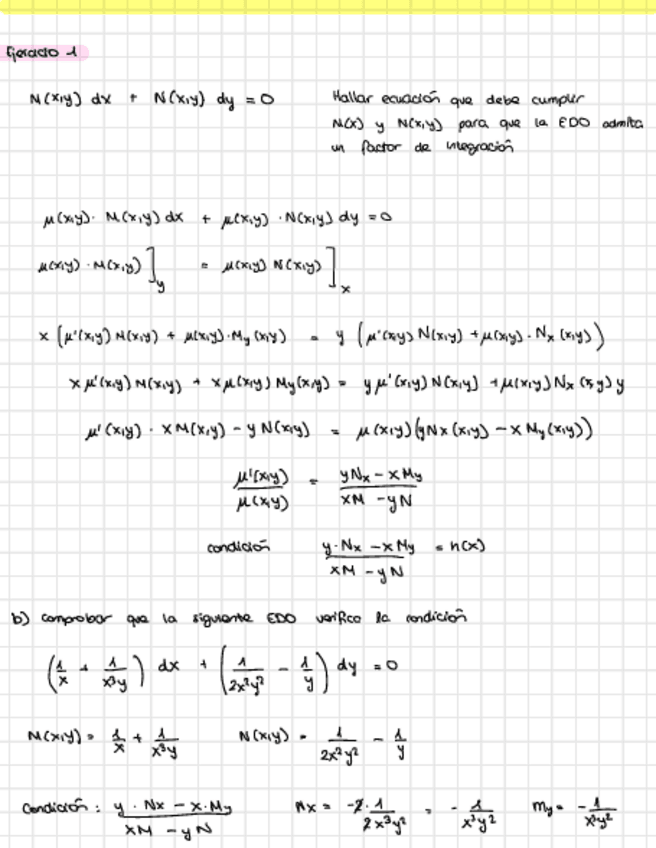 Ejercicio 1
M(x,y) dx + N(x,y) dy = 0
Hallar ecuación que debe cumplir
M(x) y N(x,y) para que la EDO admita
un factor de integración
μ(x,y) · M(x,y) dx + μ(x,y) · N(x,y) dy = 0
μ(x,y) · M(x,y) ]y = μ(x,y) N(x,y) ]x
x (μ'(x,y) M(x,y) + μ(x,y) · My (x,y)) = y (μ'(x,y) N(x,y) + μ(x,y) · Nx (x,y))
x μ'(x,y) M(x,y) + x μ(x,y) My(x,y) = y μ'(x,y) N(x,y) + μ(x,y) Nx (x,y) y
μ'(x,y) · x M(x,y) - y N(x,y) = μ(x,y) (y Nx (x,y) - x My (x,y))
μ'(x,y) / μ(x,y) = (y Nx - x My) / (xM - yN)
condición (y · Nx - x My) / (xM - yN) = h(x)
b) comprobar que la siguiente EDO verifica la condición
(1/x + 1/(x³y)) dx + (1/(2x²y²) - 1/y) dy = 0
M(x,y) = 1/x + 1/(x³y) N(x,y) = 1/(2x²y²) - 1/y
Condición : (y · Nx - x · My) / (xM - yN) Nx = (-2 · 1)/(2x³y²) = - 1/(x³y²) My = - 1/(x³y²)